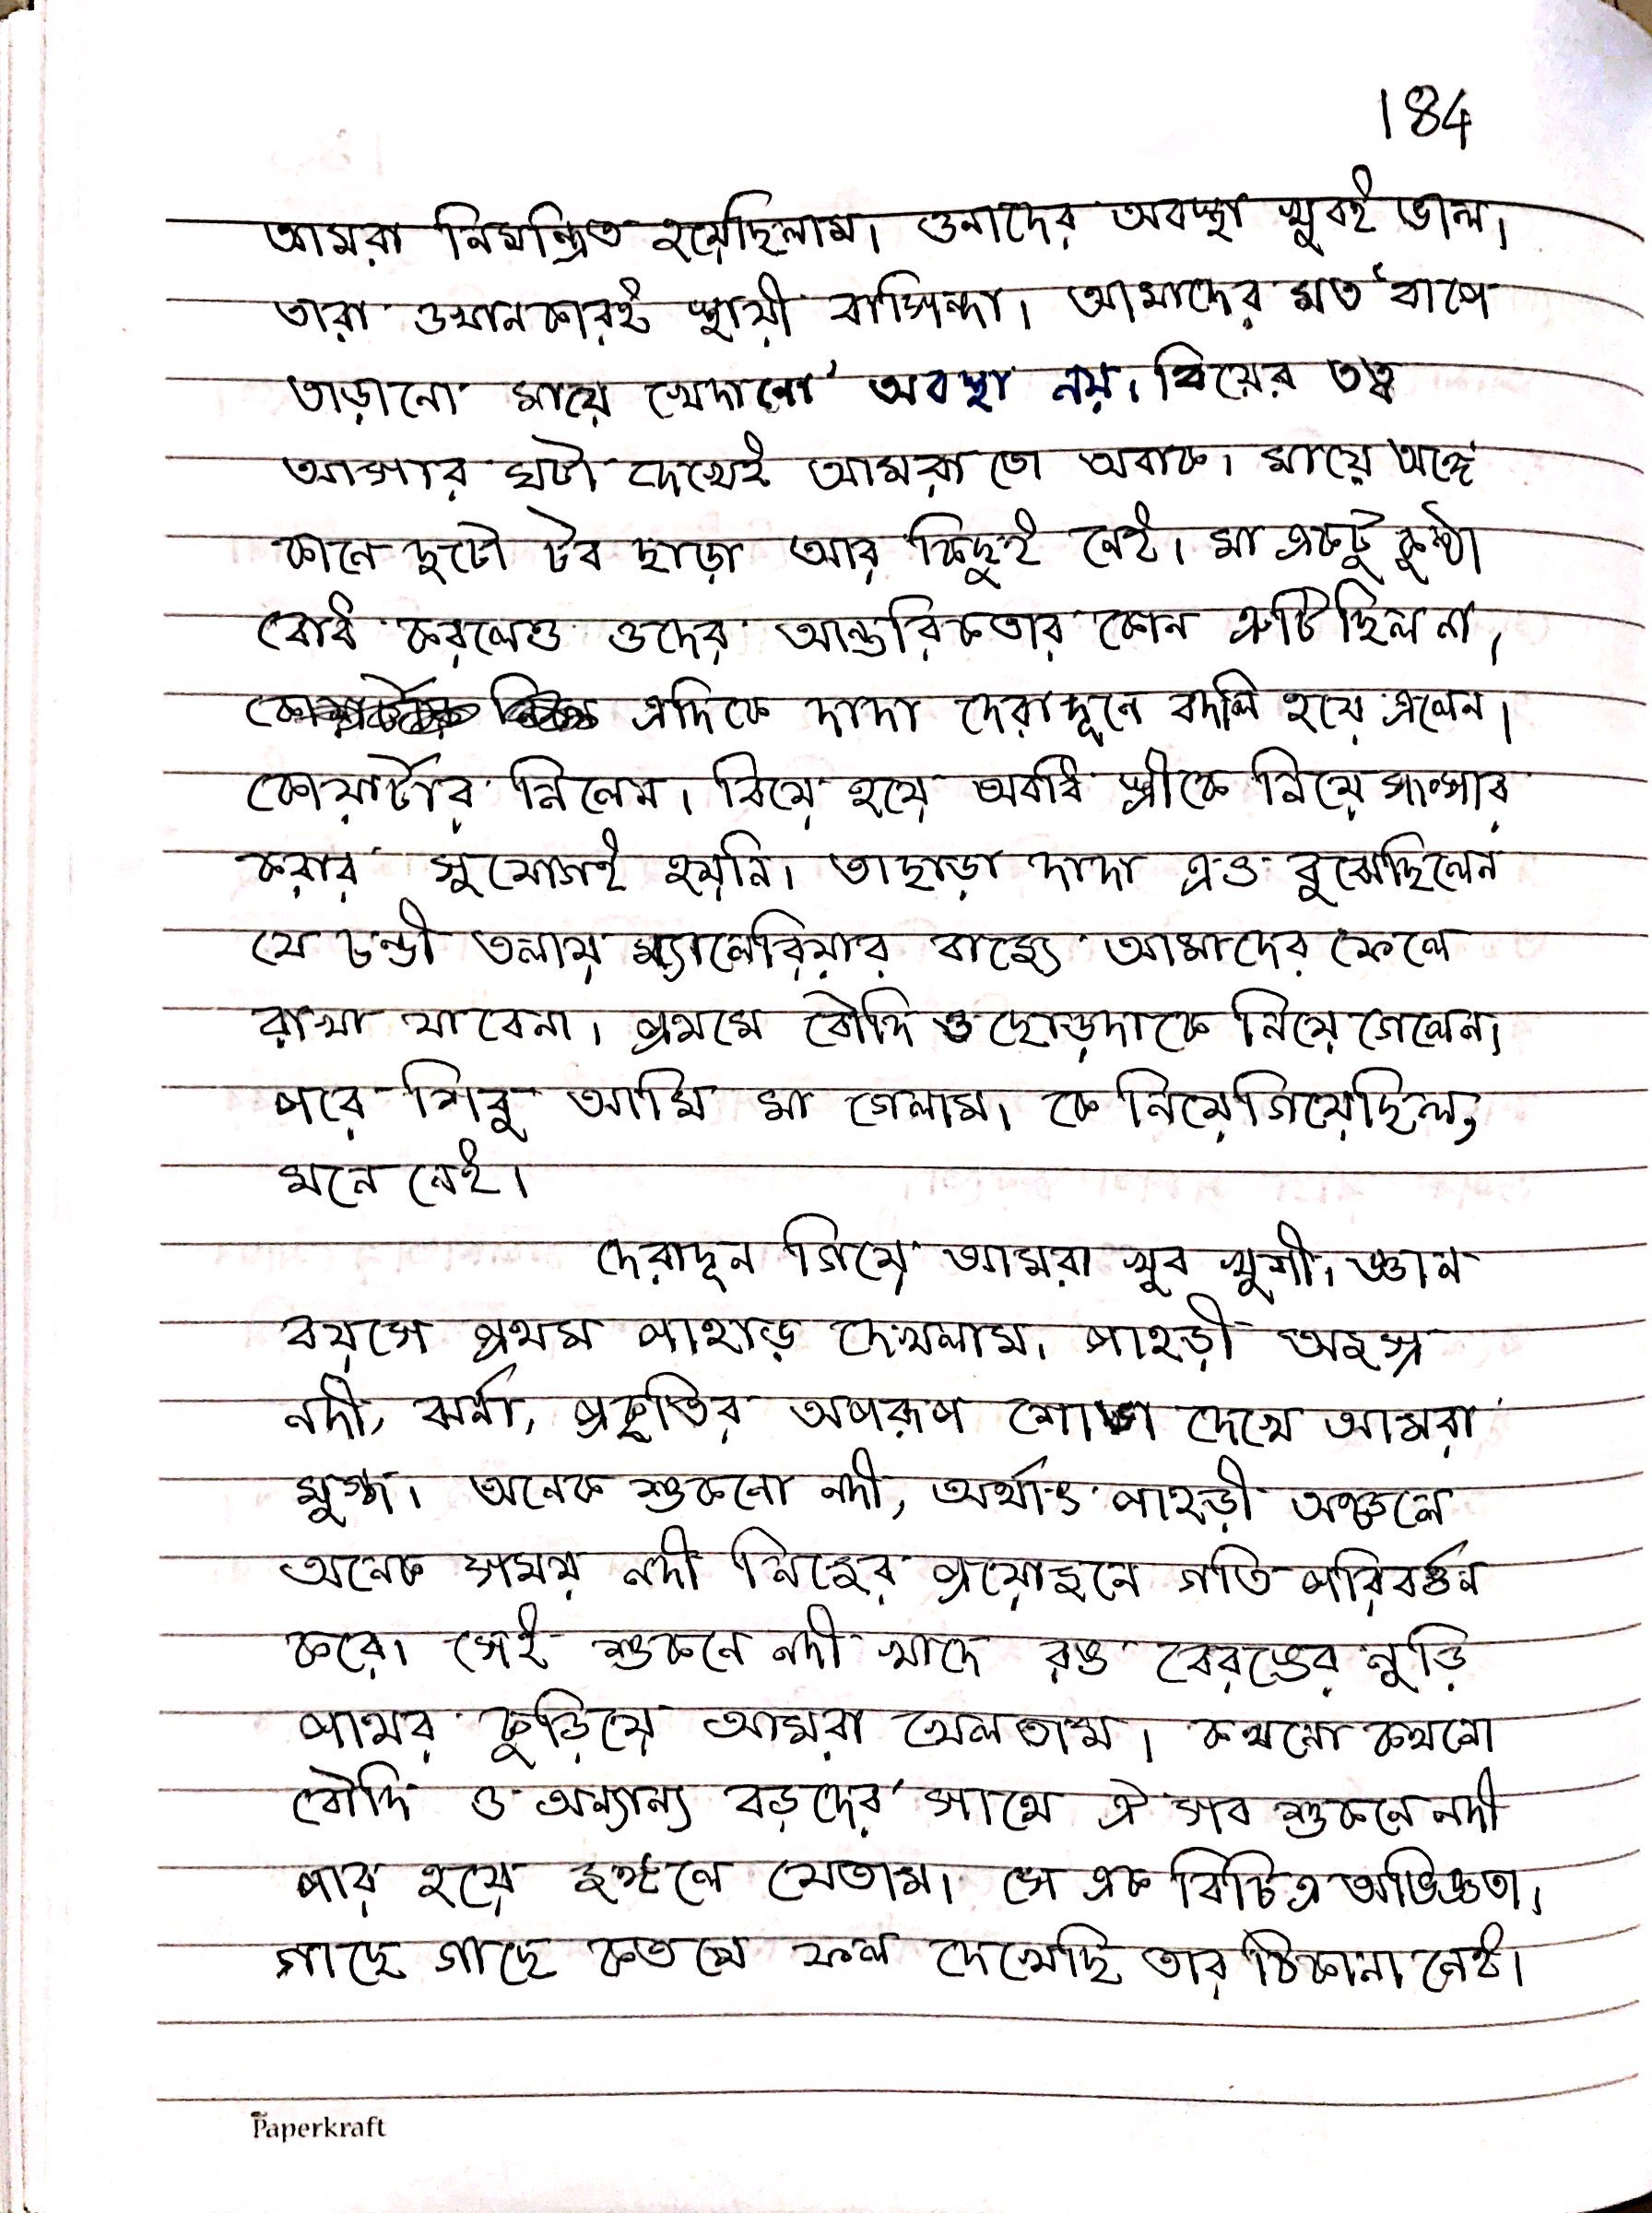 184
আমরা নিমন্ত্রিত হয়েছিলাম। ওনাদের অবস্থা খুবই ভাল।
তারা ওখানকারই স্থায়ী বাসিন্দা। আমাদের মত 'বাপে
তাড়ানো মায়ে খেদানো' অবস্থা নয়। বিয়ের তত্ব
আসার ঘটা দেখেই আমরা তো অবাক। মায়ের অঙ্গে
কানে দুটো টব ছাড়া আর কিছুই নেই। মা একটু কুন্ঠা
বোধ করলেও ওদের আন্তরিকতার কোন ত্রুটি ছিল না।
এদিকে দাদা দেরাদূনে বদলি হয়ে এলেন।
কোয়ার্টার নিলেন। বিয়ে হয়ে অবধি স্ত্রীকে নিয়ে সংসার
করার সুযোগই হয়নি। তাছাড়া দাদা এও বুঝেছিলেন
যে চন্ডী তলায় ম্যালেরিয়ার রাজ্যে আমাদের ফেলে
রাখা যাবেনা। প্রথমে বৌদি ও ছোড়দাকে নিয়ে গেলেন।
পরে শিবু আমি মা গেলাম। কে নিয়ে গিয়েছিল,
মনে নেই।
দেরাদূন গিয়ে আমরা খুব খুশী। জ্ঞান
বয়সে প্রথম পাহাড় দেখলাম। পাহড়ী অজস্র
নদী, ঝর্না, প্রকৃতির অপরূপ শোভা দেখে আমরা
মুগ্ধ। অনেক শুকনো নদী, অর্থাৎ পাহড়ী অঞ্চলে
অনেক সময় নদী নিজের প্রয়োজনে গতি পরিবর্ত্তন
করে। সেই শুকনে নদী খাদে রঙ বেরঙের নুড়ি
পাথর কুড়িয়ে আমরা খেলতাম। কখনো কখনো
বৌদি ও অন্যান্য বড়দের সাথে ঐ সব শুকনে নদী
পার হয়ে জঙ্গলে যেতাম। সে এক বিচিত্র অভিজ্ঞতা।
গাছে গাছে কত যে ফল দেখেছি তার ঠিকানা নেই।
Paperkraft